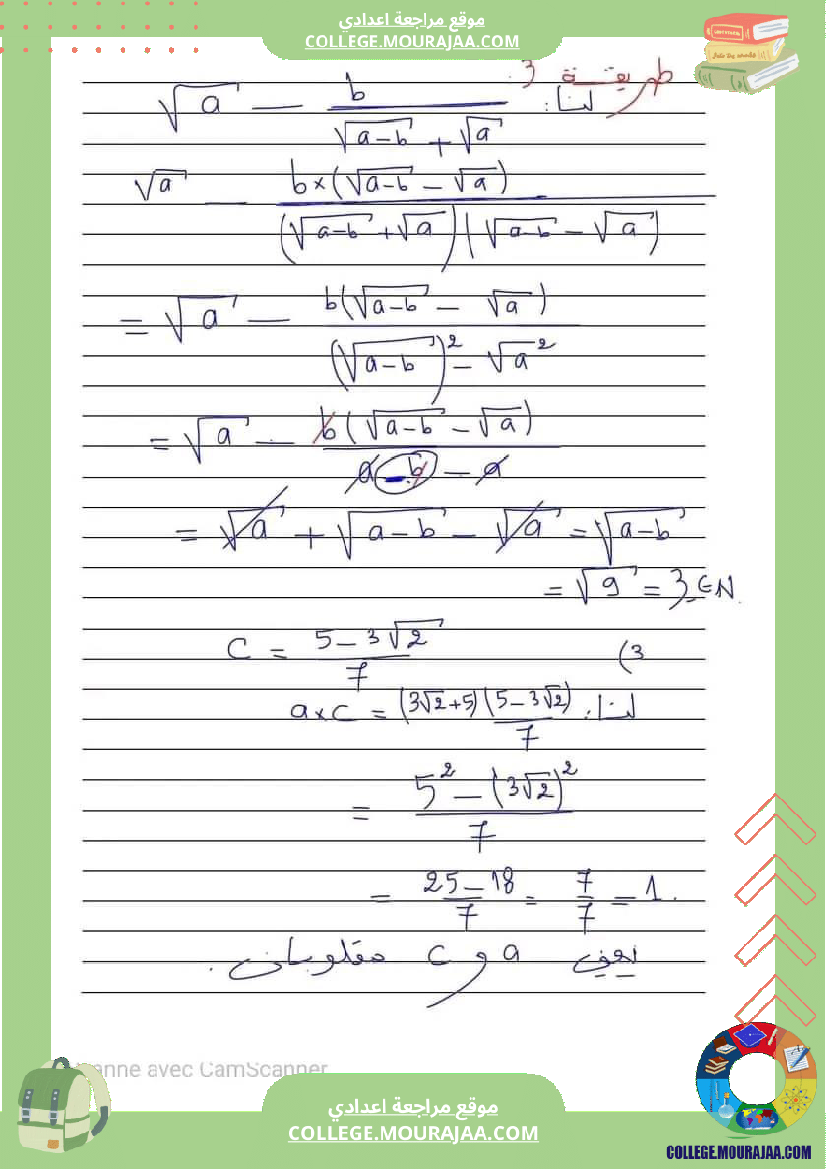 موقع مراجعة اعدادي
COLLEGE.MOURAJAA.COM
طريقة 3.
لنا: √a − b/(√(a−b) + √a)
√a − b×(√(a−b) − √a)/(√(a−b) + √a)(√(a−b) − √a)
= √a − b(√(a−b) − √a)/(√(a−b))² − √a²
= √a − b(√(a−b) − √a)/a − b − a
= √a + √(a−b) − √a = √(a−b)
= √9 = 3 ∈ N.
3) C = (5 − 3√2)/7
لنا: a×c = (3√2+5)(5−3√2)/7
= 5² − (3√2)²/7
= 25 − 18/7 = 7/7 = 1.
a و c مقلوبان.
Scanne avec CamScanner
موقع مراجعة اعدادي
COLLEGE.MOURAJAA.COM
COLLEGE.MOURAJAA.COM